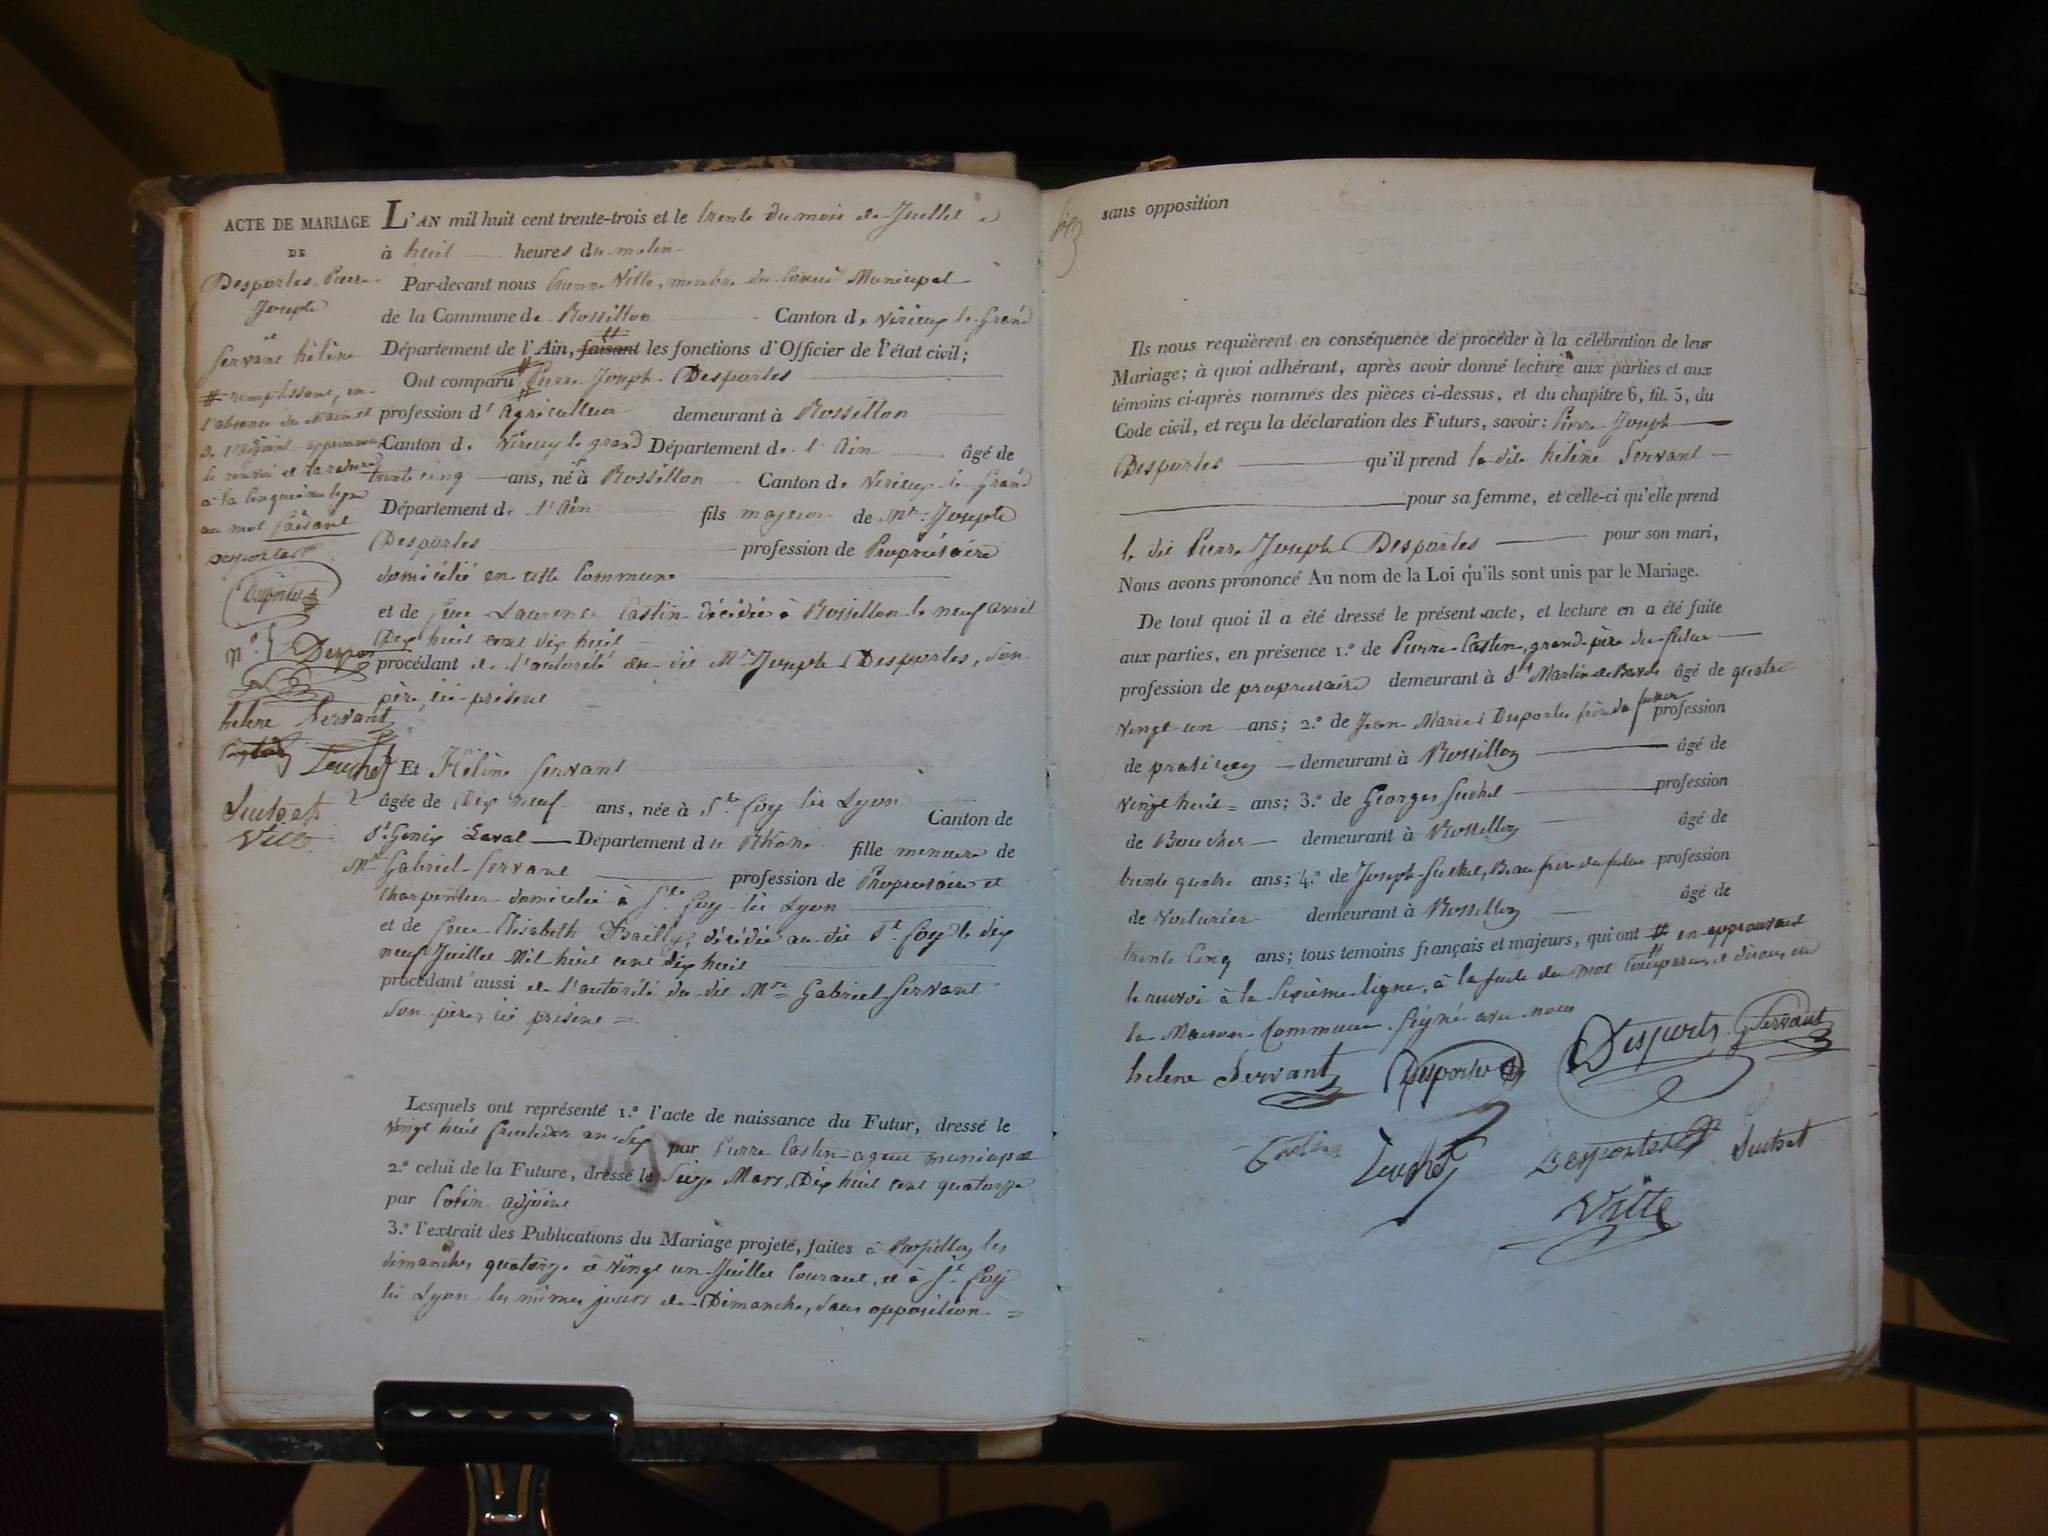 ACTE DE MARIAGE
DE
Desportes, Pierre
Joseph
et
Servant hélène
# remplissant, en
l'absence du Maire et
de l'adjoint. approuvé
le renvoi et la rature
à la cinquième ligne
au mot faisant
Desportes
Desportes
helene Servant
Suchet
Suchet
Vitte
L'AN mil huit cent trente-trois et le trente du mois de Juillet
à huit heures du matin
Par-devant nous Vitte, membre du Conseil Municipal
de la Commune de Rossillon Canton de Virieux le Grand
Département de l'Ain, faisant # les fonctions d'Officier de l'état civil;
Ont comparu # Pierre Joseph Desportes
profession d' Agriculteur demeurant à Rossillon
Canton de Virieux le grand Département de l'Ain âgé de
trente cinq ans, né à Rossillon Canton de Virieux le Grand
Département de l'Ain fils majeur de Mr. Joseph
Desportes profession de Propriétaire
domicilié en cette Commune
et de feue Laurence Castin décédée à Rossillon le neuf avril
Dix huit cent dix huit
procédant de l'autorité du dit Mr. Joseph Desportes, son
père, ici présent
Et Hélène Servant
âgée de Dix neuf ans, née à Ste. foy lès Lyon Canton de
St. Genix Laval Département du Rhône fille mineure de
Mr. Gabriel Servant profession de Propriétaire et
Charpentier domicilié à Ste. foy lès Lyon
et de feue Elisabeth Bailly, décédée au dit Ste. foy le dix
neuf Juillet Mil huit cent dix huit
procédant aussi de l'autorité du dit Mr. Gabriel Servant
Son père, ici présent =
Lesquels ont représenté 1.° l'acte de naissance du Futur, dressé le
Vingt huit fructidor an Six par Pierre Castin agent municipal
2.° celui de la Future, dressé le Seize Mars, Dix huit cent quatorze
par Colin adjoint
3.° l'extrait des Publications du Mariage projeté, faites à Rossillon les
dimanches quatorze et Vingt un Juillet Courant, et à Ste. foy
lès Lyon les mêmes jours de Dimanche, sans opposition =
sans opposition
Ils nous requièrent en conséquence de procéder à la célébration de leur
Mariage; à quoi adhérant, après avoir donné lecture aux parties et aux
témoins ci-après nommés des pièces ci-dessus, et du chapitre 6, tit. 5, du
Code civil, et reçu la déclaration des Futurs, savoir: Pierre Joseph
Desportes qu'il prend la dite hélène Servant
pour sa femme, et celle-ci qu'elle prend
le dit Pierre Joseph Desportes pour son mari,
Nous avons prononcé Au nom de la Loi qu'ils sont unis par le Mariage.
De tout quoi il a été dressé le présent acte, et lecture en a été faite
aux parties, en présence 1.° de Pierre Castin, grand-père du futur
profession de propriétaire demeurant à St. Martin de Bavel âgé de quatre
vingt un ans; 2.° de Jean Marie Desportes frère du futur profession
de praticien demeurant à Rossillon âgé de
vingt huit = ans; 3.° de Georges Suchet profession
de Boucher demeurant à Rossillon âgé de
trente quatre ans; 4.° de Joseph Suchet, Beau frère du futur profession
de Voiturier demeurant à Rossillon âgé de
trente Cinq ans; tous temoins français et majeurs, qui ont # en approuvant
le renvoi à la Sixième ligne, à la suite du mot Comparu, et disons en
la Maison Commune. signé avec nous
helene Servant Desportes Desportes G Servant
Castin Suchet Desportes Suchet
Vitte